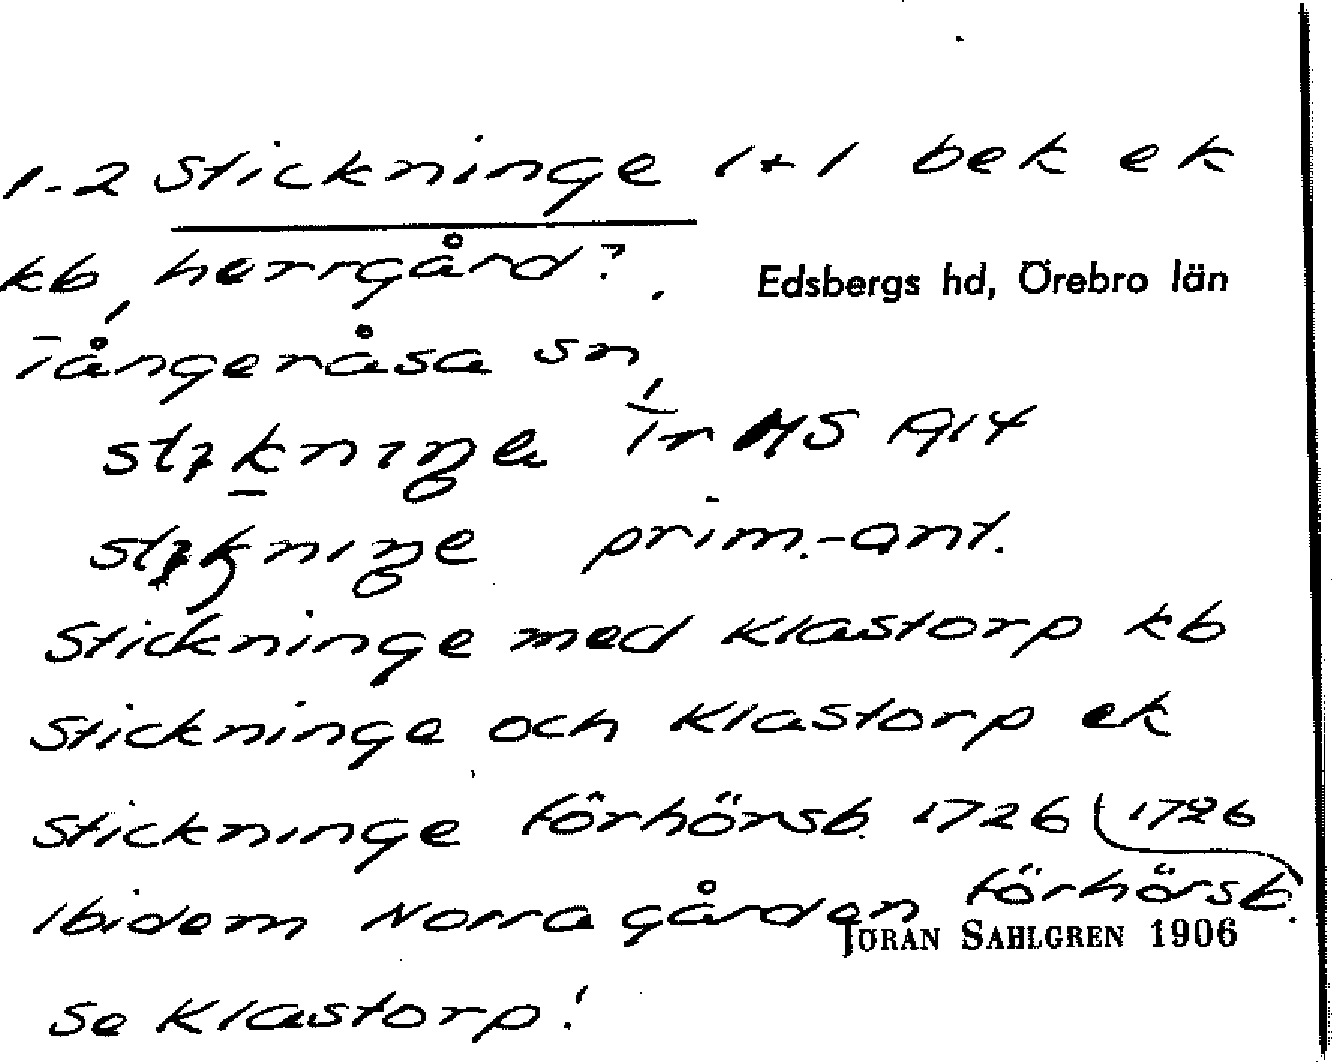 1-2 Stickninge 1+1 bek ek
kb, herrgård?.
Edsbergs hd, Örebro län
Tångeråsa sn,
Ir MS 1914
prim.-ant.
Stickninge med Klastorp kb
Stickninge och Klastorp ek
Stickninge förhörsb. 1726 1726
Ibidem Norra gården förhörsb.
JÖRAN SAHLGREN 1906
Se Klastorp!